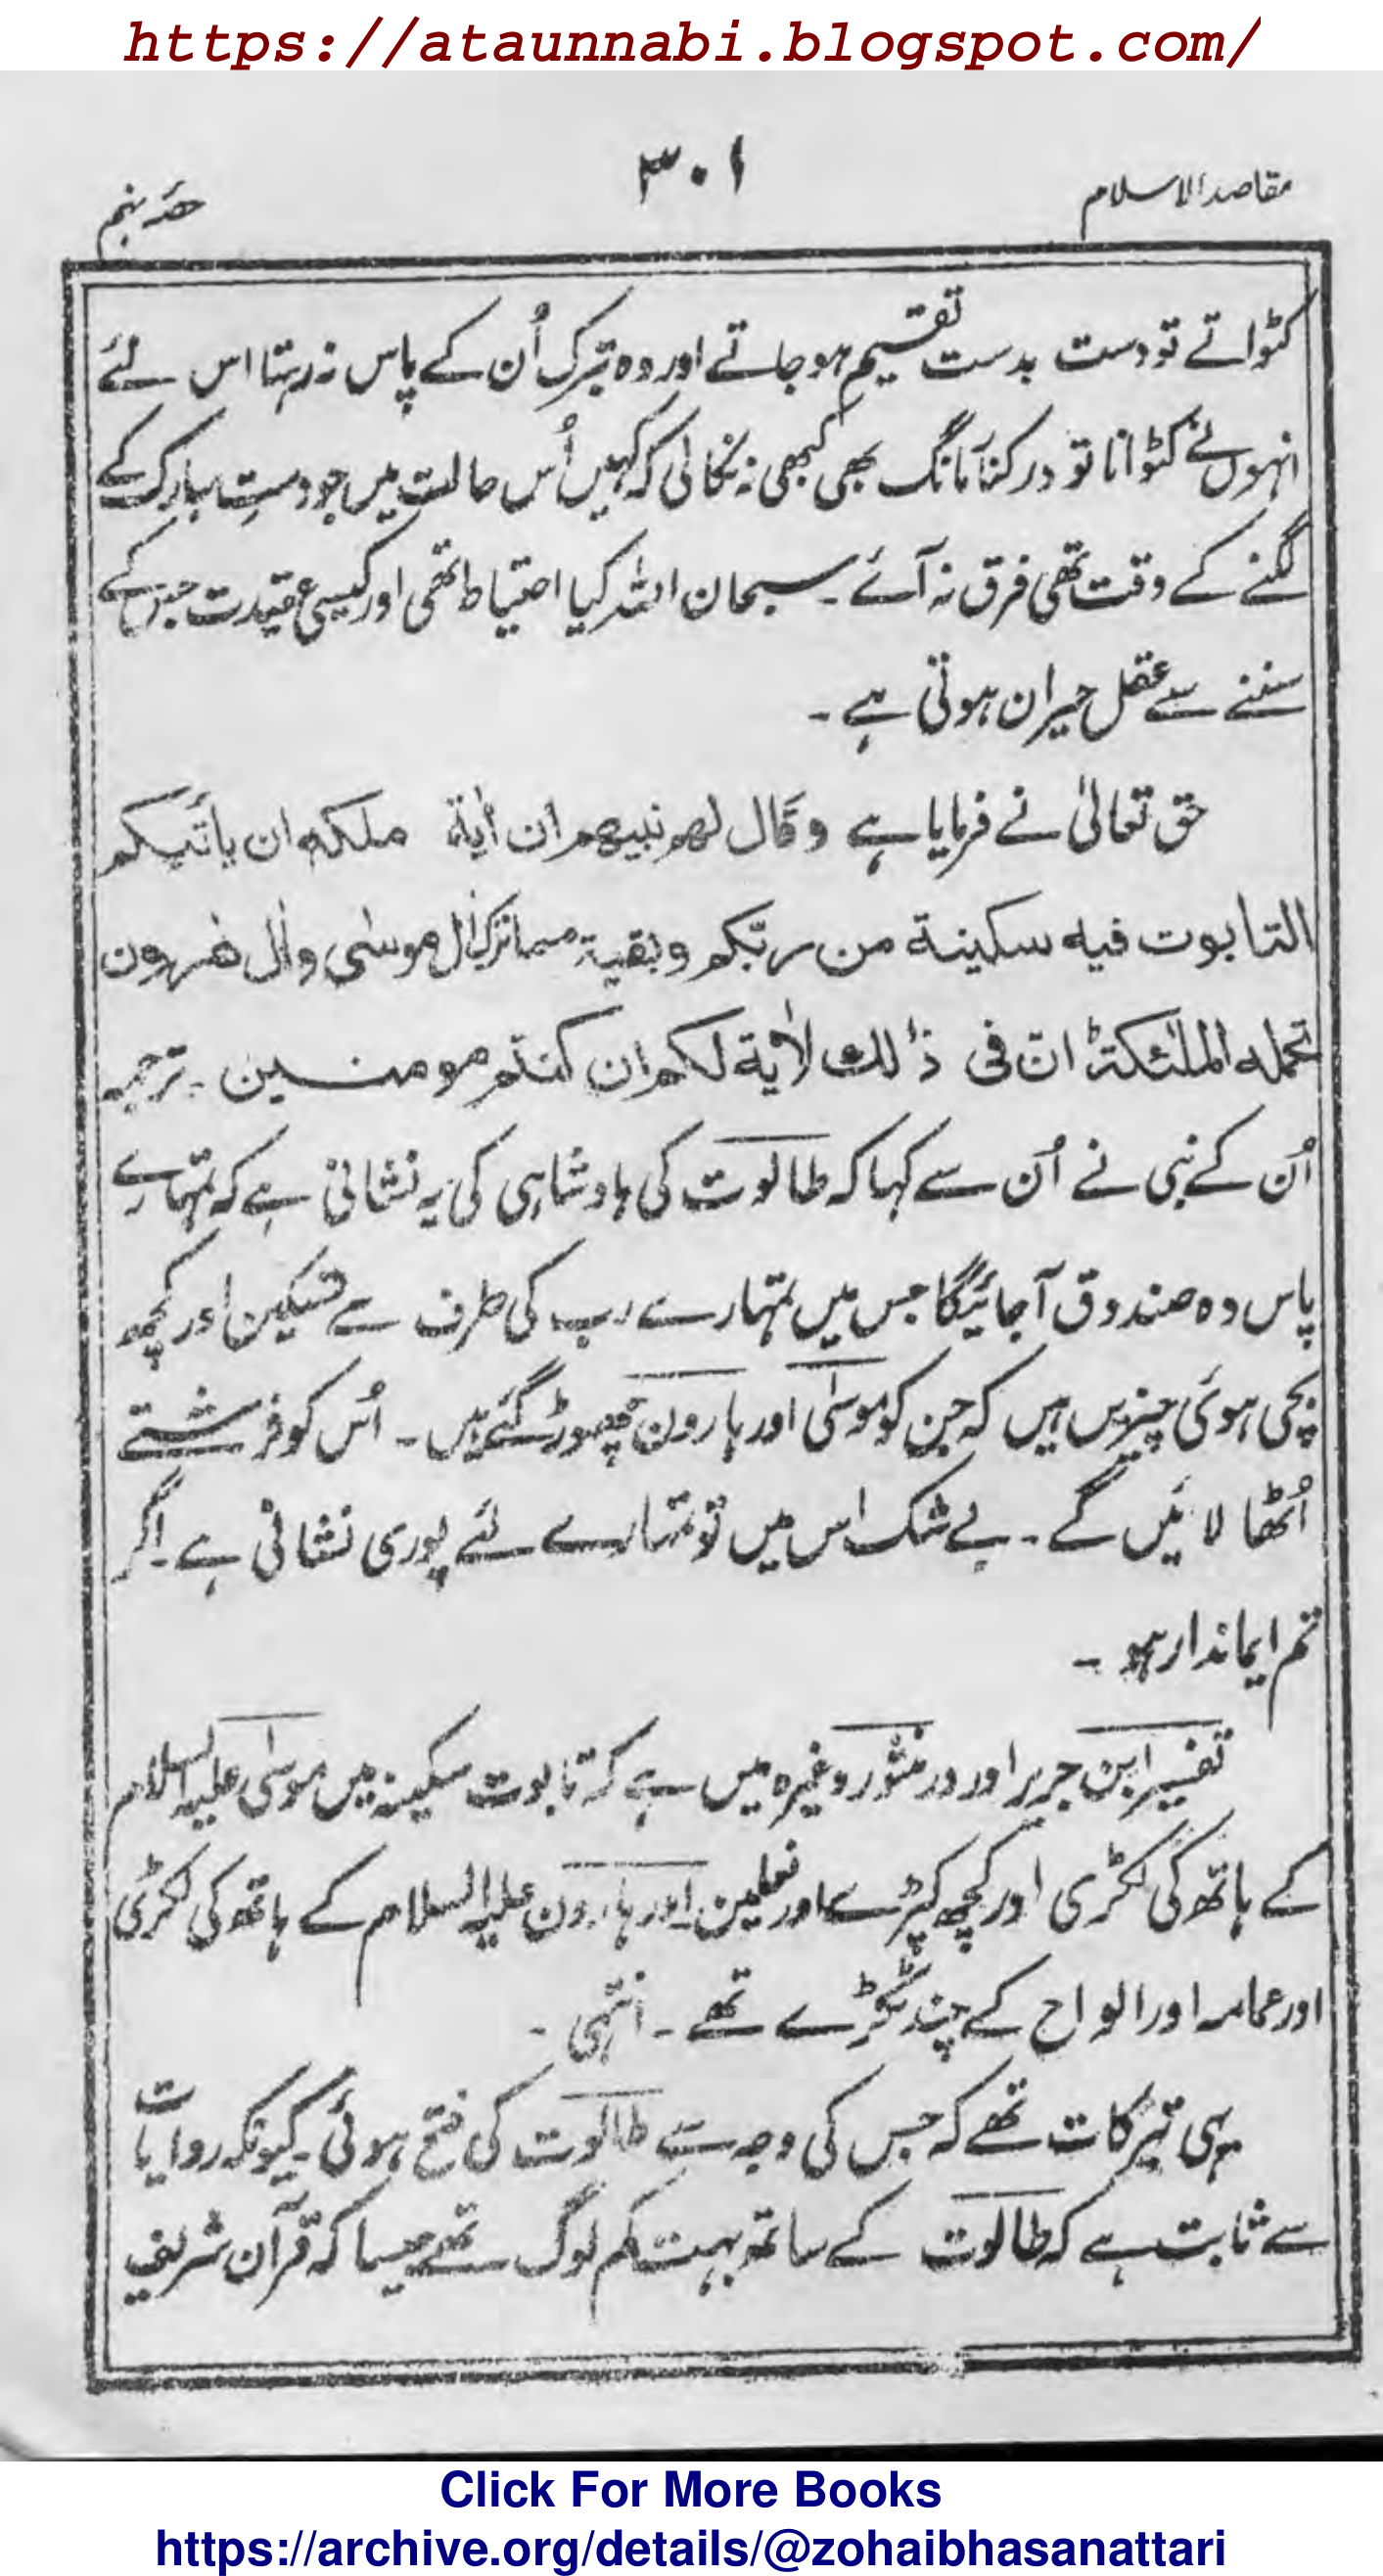 https://ataunnabi.blogspot.com/
مقاصد الاسلام
۳۰۱
حصّہ پنجم
کٹواتے تو دست بدست تقسیم ہو جاتے اور وہ تبرک اُن کے پاس نہ رہتا اس لئے
انہوں نے کٹوانا تو درکنار مانگ بھی کبھی نہ نکالی کہ کہیں اُس حالت میں جو دستِ مبارک کے
لگنے کے وقت تھی فرق نہ آئے ۔ سبحان اللہ کیا احتیاط تھی اور کیسی عقیدت جس کے
سننے سے عقل حیران ہوتی ہے ۔
حق تعالیٰ نے فرمایا ہے وقال لهم نبيهم ان اٰية ملكه ان يأتيكم
التابوت فيه سكينة من ربّكم وبقية مما ترك اٰل موسٰى واٰل هٰرون
تحمله الملٰئكة ط ان فى ذٰلك لاٰية لكم ان كنتم مومنين ۔ ترجمہ
اُن کے نبی نے اُن سے کہا کہ طالوت کی بادشاہی کی یہ نشانی ہے کہ تمہارے
پاس وہ صندوق آجائیگا جس میں تمہارے رب کی طرف سے تسکین اور کچھ
بچی ہوئی چیزیں ہیں کہ جن کو موسٰی اور ہارون چھوڑ گئے ہیں ۔ اُس کو فرشتے
اُٹھا لائیں گے ۔ بے شک اس میں تو تمہارے لئے پوری نشانی ہے ۔ اگر
تم ایماندار ہو ۔
تفسیر ابن جریر اور در منثور وغیرہ میں ہے کہ تابوت سکینہ میں موسٰی علیہ السلام
کے ہاتھ کی لکڑی اور کچھ کپڑے اور نعلین اور ہارون علیہ السلام کے ہاتھ کی لکڑی
اور عمامہ اور الواح کے چند ٹکڑے تھے ۔ انتہی ۔
یہی تبرکات تھے کہ جس کی وجہ سے طالوت کی فتح ہوئی ۔ کیونکہ روایات
سے ثابت ہے کہ طالوت کے ساتھ بہت کم لوگ تھے جیسا کہ قرآن شریف
Click For More Books
https://archive.org/details/@zohaibhasanattari